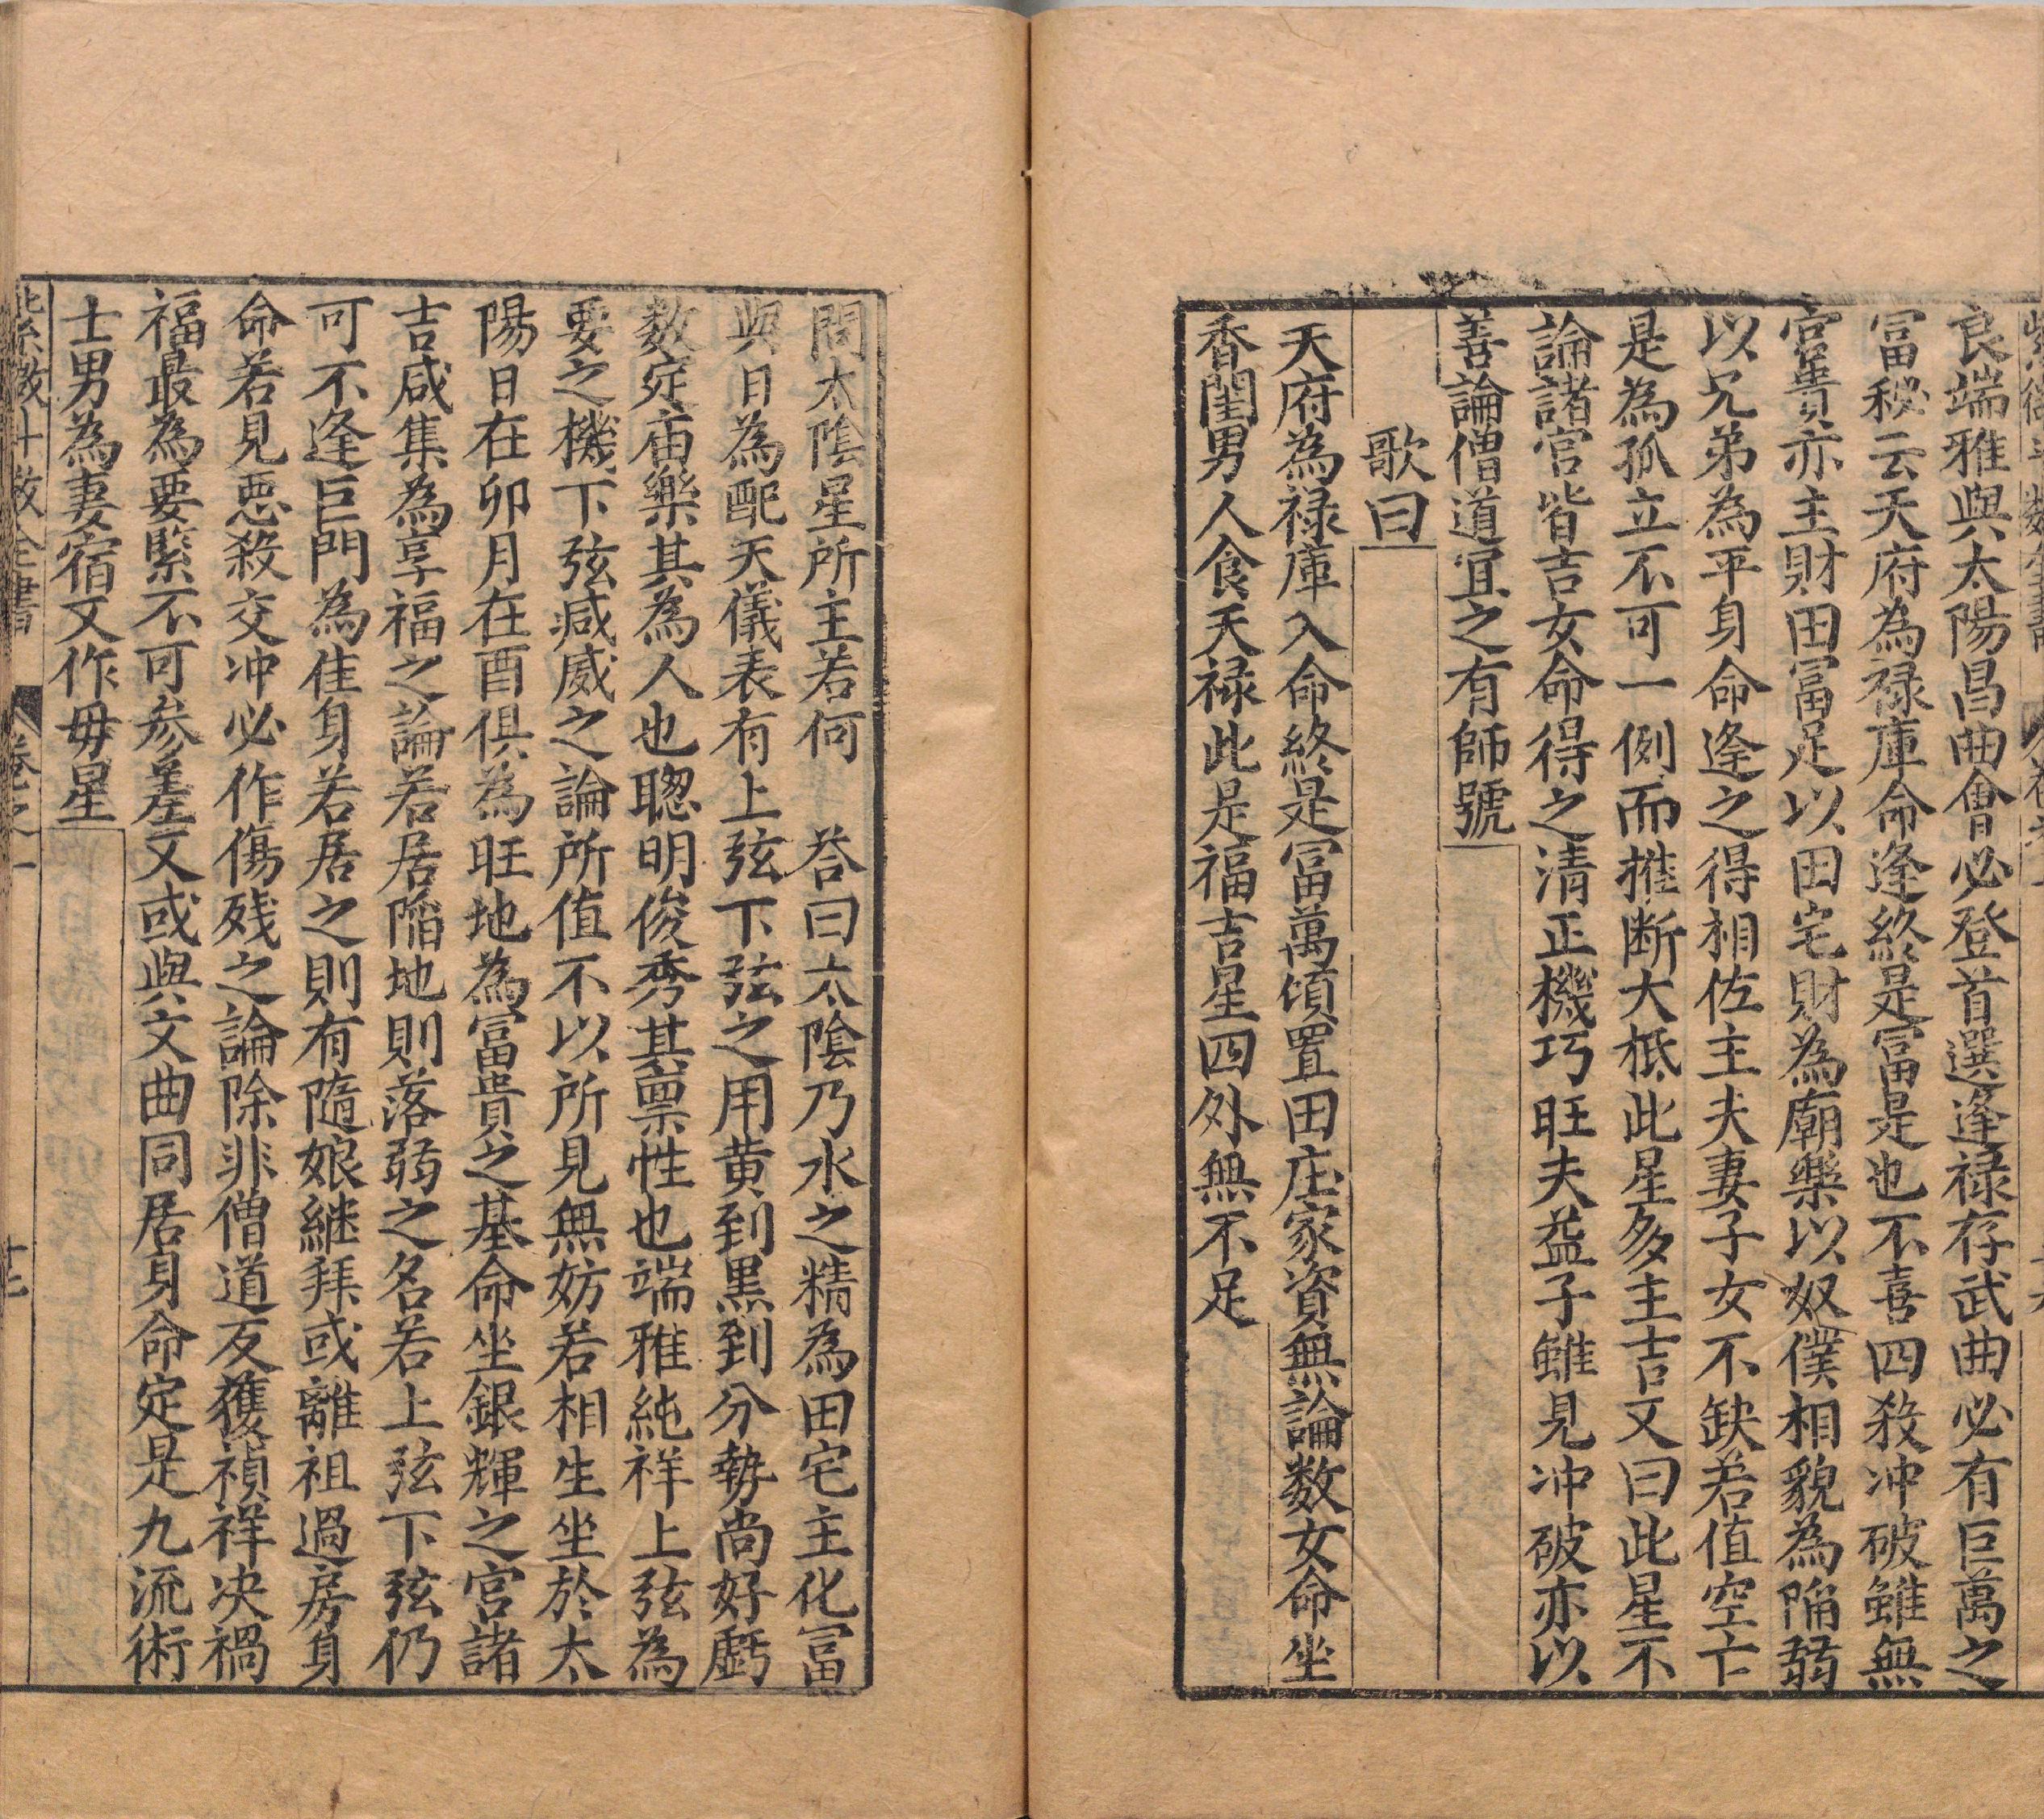 良端雅與太陽昌曲會必登首選逢禄存武曲必有巨萬之
富秘云天府為禄庫命逢終是富是也不喜四殺冲破雖無
官貴亦主財田富足以田宅財為廟樂以奴僕相貌為陷弱
以兄弟為平身命逢之得相佐主夫妻子女不缺若值空亡
是為孤立不可一例而推断大柢此星多主吉又曰此星不
論諸宫皆吉女命得之清正機巧旺夫益子雖見冲破亦以
善論僧道宜之有師號
歌曰
天府為禄庫入命終是富萬頃置田庄家資無論数女命坐
香閨男人食天禄此是福吉星四外無不足
問太陰星所主若何 荅曰太陰乃水之精為田宅主化富
與日為配天儀表有上弦下弦之用黄到黒到分勢尚好虧
数定庙樂其為人也聦明俊秀其禀性也端雅純祥上弦為
要之機下弦减威之論所值不以所見無妨若相生坐於太
陽日在卯月在酉俱為旺地為富貴之基命坐銀輝之宫諸
吉咸集為享福之論若居陷地則落弱之名若上弦下弦仍
可不逢巨門為佳身若居之則有隨娘継拜或離祖過房身
命若見悪殺交冲必作傷残之論除非僧道反獲禎祥决禍
福最為要緊不可参差又或與文曲同居身命定是九流術
士男為妻宿又作毋星
紫微斗数全書 卷之一 十七